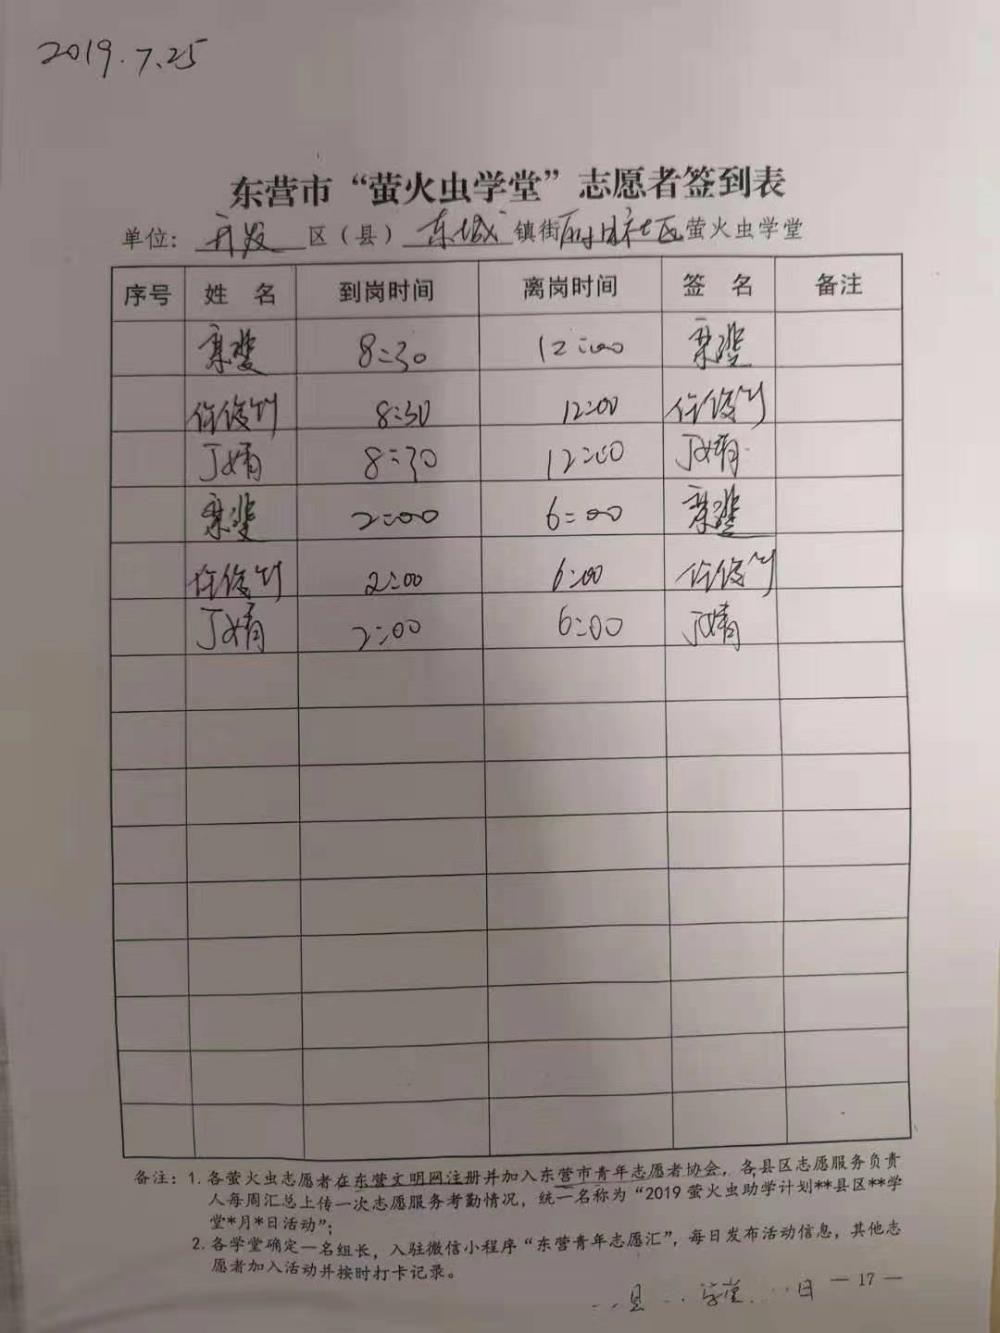 2019.7.25
东营市“萤火虫学堂”志愿者签到表
单位: 开发 区(县) 东城 镇街 社区 萤火虫学堂
序号 姓 名 到岗时间 离岗时间 签 名 备注
8:30 12:00
任俊 8:30 12:00 任俊
丁婧 8:30 12:00 丁婧
2:00 6:00
任俊 2:00 6:00 任俊
丁婧 2:00 6:00 丁婧
备注: 1.各萤火虫志愿者在东营文明网注册并加入东营市青年志愿者协会，各县区志愿服务负责
人每周汇总上传一次志愿服务考勤情况，统一名称为“2019萤火虫助学计划**县区**学
堂*月*日活动”;
2.各学堂确定一名组长，入驻微信小程序“东营青年志愿汇”，每日发布活动信息，其他志
愿者加入活动并按时打卡记录。
县 学堂 日
— 17 —